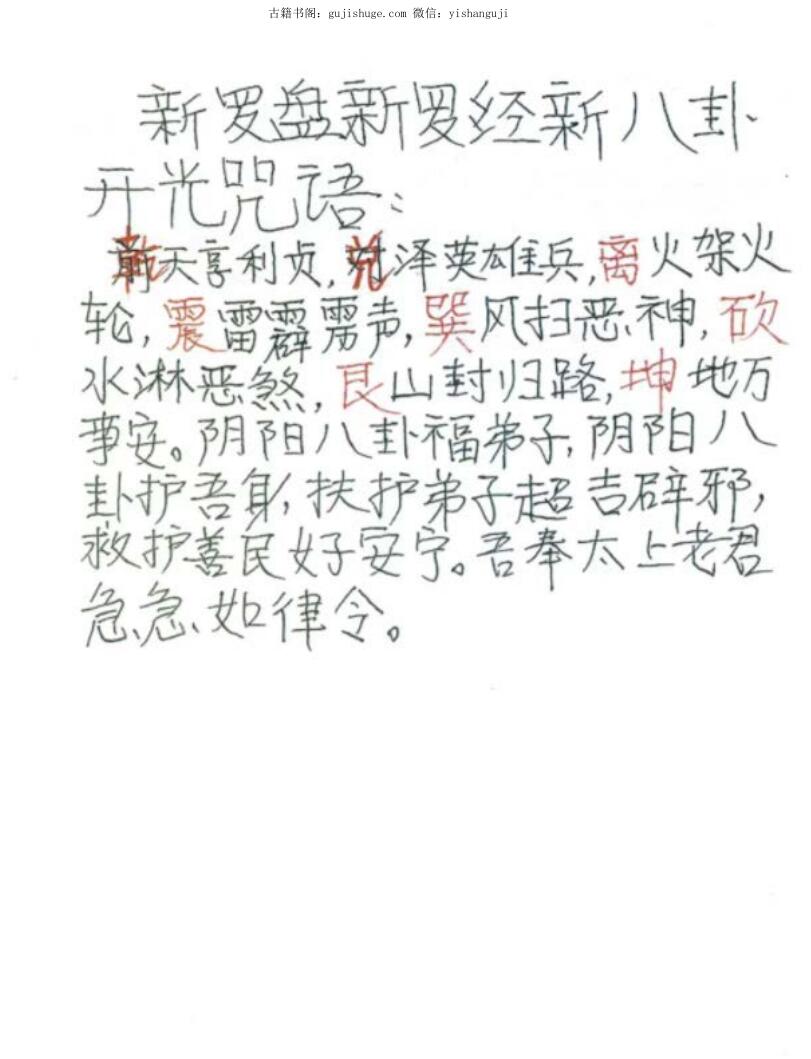 古籍书阁：gujishuge.com 微信：yishanguji
新罗盘新罗经新八卦
开光咒语：
乾天享利贞，兑泽英雄兵，离火架火
轮，震雷霹雳声，巽风扫恶神，砍
水淋恶煞，艮山封归路，坤地万
事安。阴阳八卦福弟子，阴阳八
卦护吾身，扶护弟子超吉辟邪，
救护善民好安宁。吾奉太上老君
急急如律令。